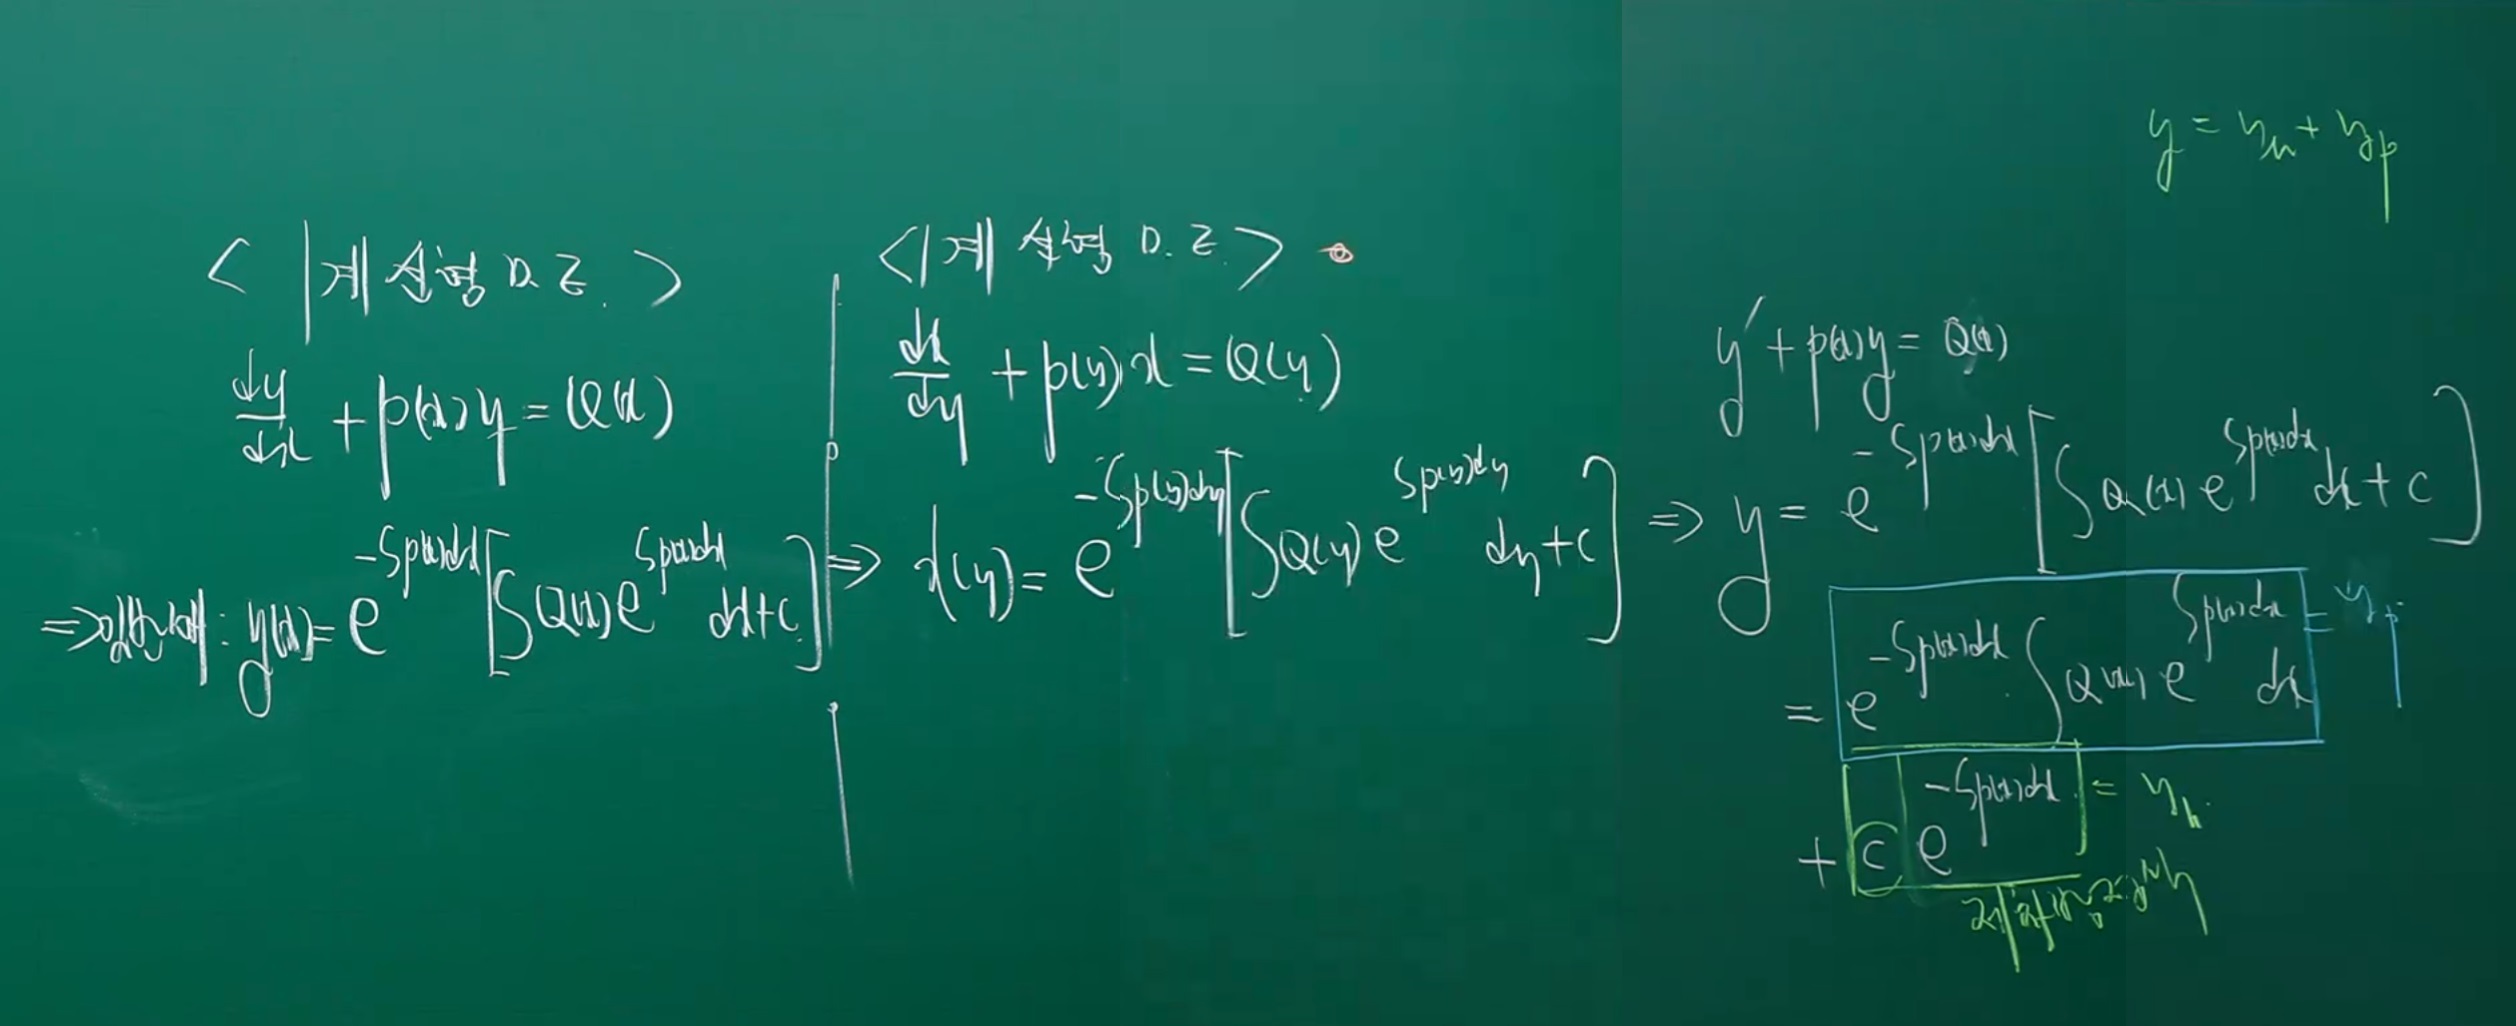 <1계 선형 D.E.>
dy/dx + p(x)y = Q(x)
⇒ 일반해 : y(x) = e^{-∫p(x)dx} [∫Q(x)e^{∫p(x)dx} dx+c]
<1계 선형 D.E.>
dx/dy + p(y)x = Q(y)
⇒ x(y) = e^{-∫p(y)dy} [∫Q(y)e^{∫p(y)dy} dy+c]
y = y_h + y_p
y' + p(x)y = Q(x)
⇒ y = e^{-∫p(x)dx} [∫Q(x)e^{∫p(x)dx} dx + c]
= e^{-∫p(x)dx} ∫Q(x)e^{∫p(x)dx} dx = y_p
+ c e^{-∫p(x)dx} = y_h